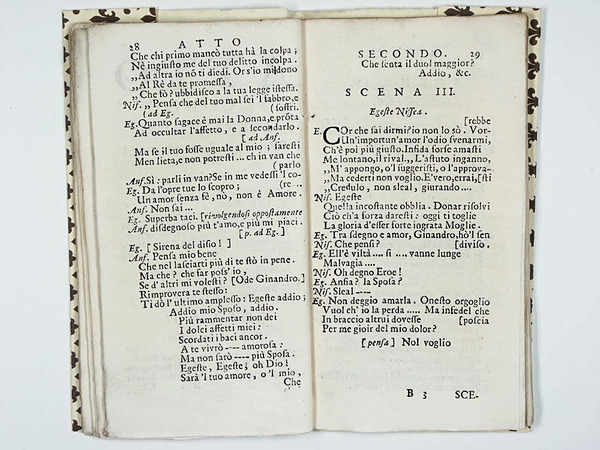 28 ATTO
Che chi primo mancò tutta hà la colpa;
Nè ingiusto me del tuo delitto incolpa.
„Ad altra io nó ti diedi. Or s'io mi dono
„Al Rè da te promessa,
„Che fo? ubbidisco a la tua legge istessa.
Nis. „ Pensa che del tuo mal sei 'l fabbro, e
( ad Eg. (soffri.
Eg. Quanto sagace è mai la Donna, e prota
Ad occultar l'affetto, e a secondarlo.
[ ad Anf.
Ma se il tuo fosse uguale al mio; faresti
Men lieta, e non potresti ... ch in van che
( parlo
Anf. Sì: parli in van? Se in me vedessi 'l co-
Eg. Da l'opre tue lo scopro; (re ..
Un amor senza fè, nò, non è Amore.
Anf. Non sai ...
Eg. Superba taci. [rivolgendosi oppostamente
Anf. disdegnoso più t'amo, e più mi piaci.
[ p. ad Eg. ]
Eg. [ Sirena del diso! ]
Anf. Pensa mio bene
Che nel lasciarti più di te stò in pene.
Ma che? che far poss' io,
Se d' altri mi volesti? [Ode Ginandro.]
Rimprovera te stesso:
Ti dò l'ultimo amplesso: Egeste addio;
Addio mio Sposo, addio.
Più rammentar non dei
I dolci affetti miei:
Scordati i baci ancor.
A te vivrò --- amorosa:
Ma non sarò ---- più Sposa.
Egeste, Egeste; oh Dio!
Sarà 'l tuo amore, o 'l mio,
Che
SECONDO. 29
Che senta il duol maggior?
Addio, &c.
SCENA III.
Egeste Nissea.
[rebbe
E. COr che sai dirmi? io non lo sò. Vor-
Un'importun'amor l'odio svenarmi,
Ch'è poi più giusto. Infida forse amasti
Me lontano, il rival., L'astuto inganno,
„M' appongo, o'l suggeristi, o l'approva-
„Ma cederti non voglio. E'vero, errai, [sti
„Credulo, non sleal, giurando ....
Nis. Egeste
Quella incostante obblia. Donar risolvi
Ciò ch'a forza daresti: oggi ti toglie
La gloria d'esser forte ingrata Moglie.
Eg. Tra sdegno e amor, Ginandro, hò'l sen
Nis. Che pensi? [diviso.
Eg. Ell'è viltà .... si .... vanne lunge
Malvagia ....
Nis. Oh degno Eroe!
Eg. Anfia? la Sposa?
Nis. Sleal ----
Eg. Non deggio amarla. Onesto orgoglio
Vuol ch' io la perda ..... Ma infedel che
In braccio altrui dovesse [poscia
Per me gioir del mio dolor?
[pensa] Nol voglio
B 3 SCE-